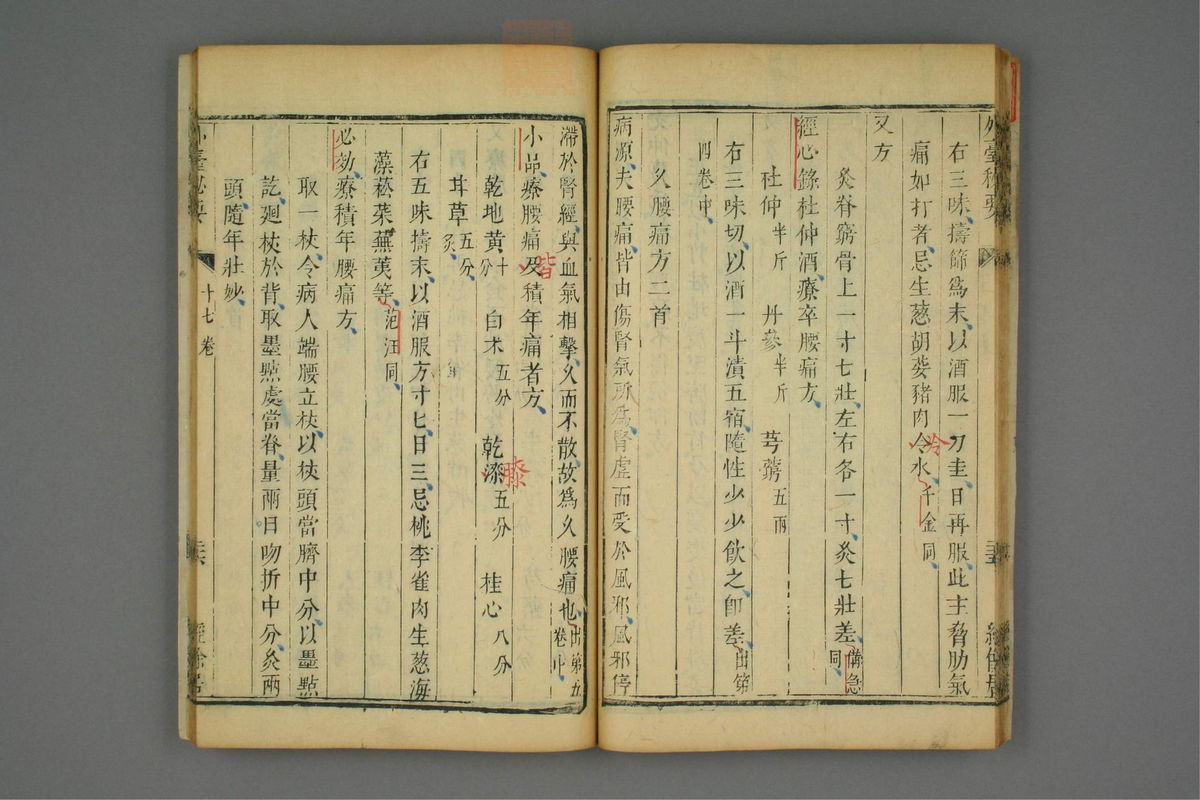 外臺秘要
右三味擣篩為末以酒服一刀圭日再服此主脅肋氣
痛如打者忌生葱胡荽豬肉令水千金同
冷
又方
灸脊窮骨上一寸七壯左右各一寸灸七壯差備急同
經心錄杜仲酒療卒腰痛方
杜仲半斤 丹參半斤 芎藭五兩
右三味切以酒一斗漬五宿隨性少少飲之即差出第
四卷中
久腰痛方二首
病源夫腰痛皆由傷腎氣所為腎虛而受於風邪風邪停
滯於腎經與血氣相擊久而不散故為久腰痛也出第五卷中
小品療腰痛及積年痛者方
皆
乾地黃十分 白朮五分 乾漆五分 桂心八分
膝
甘草五分炙
右五味擣末以酒服方寸匕日三忌桃李雀肉生葱海
藻菘菜蕪荑等范汪同
必効療積年腰痛方
取一杖令病人端腰立杖以杖頭當臍中分以墨點
訖廻杖於背取墨點處當脊量兩日吻折中分灸兩
頭隨年壯妙
外臺秘要
十七卷
經餘居